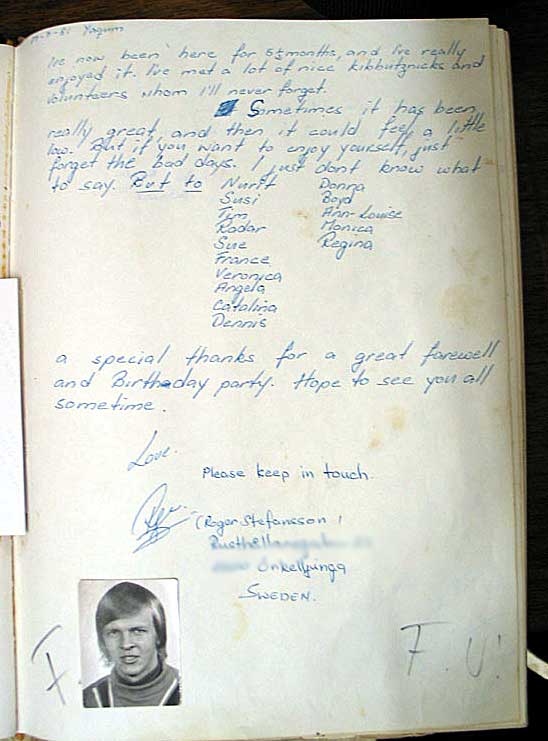 Yagum
I've now been here for 5½ months, and I've really
enjoyed it. I've met a lot of nice kibbutznicks and
volunteers whom I'll never forget.
Sometimes it has been
really great, and then it could feel a little
low. But if you want to enjoy yourself, just
forget the bad days. I just dont know what
to say. But to
Nurit
Susi
Tim
Radar
Sue
France
Veronica
Angela
Catalina
Dennis
Donna
Boyd
Ann-Louise
Monica
Regina
a special thanks for a great farewell
and Birthday party. Hope to see you all
sometime.
Love.
Please keep in touch.
(Roger Stefansson)
Örkelljunga
SWEDEN.
F. U!